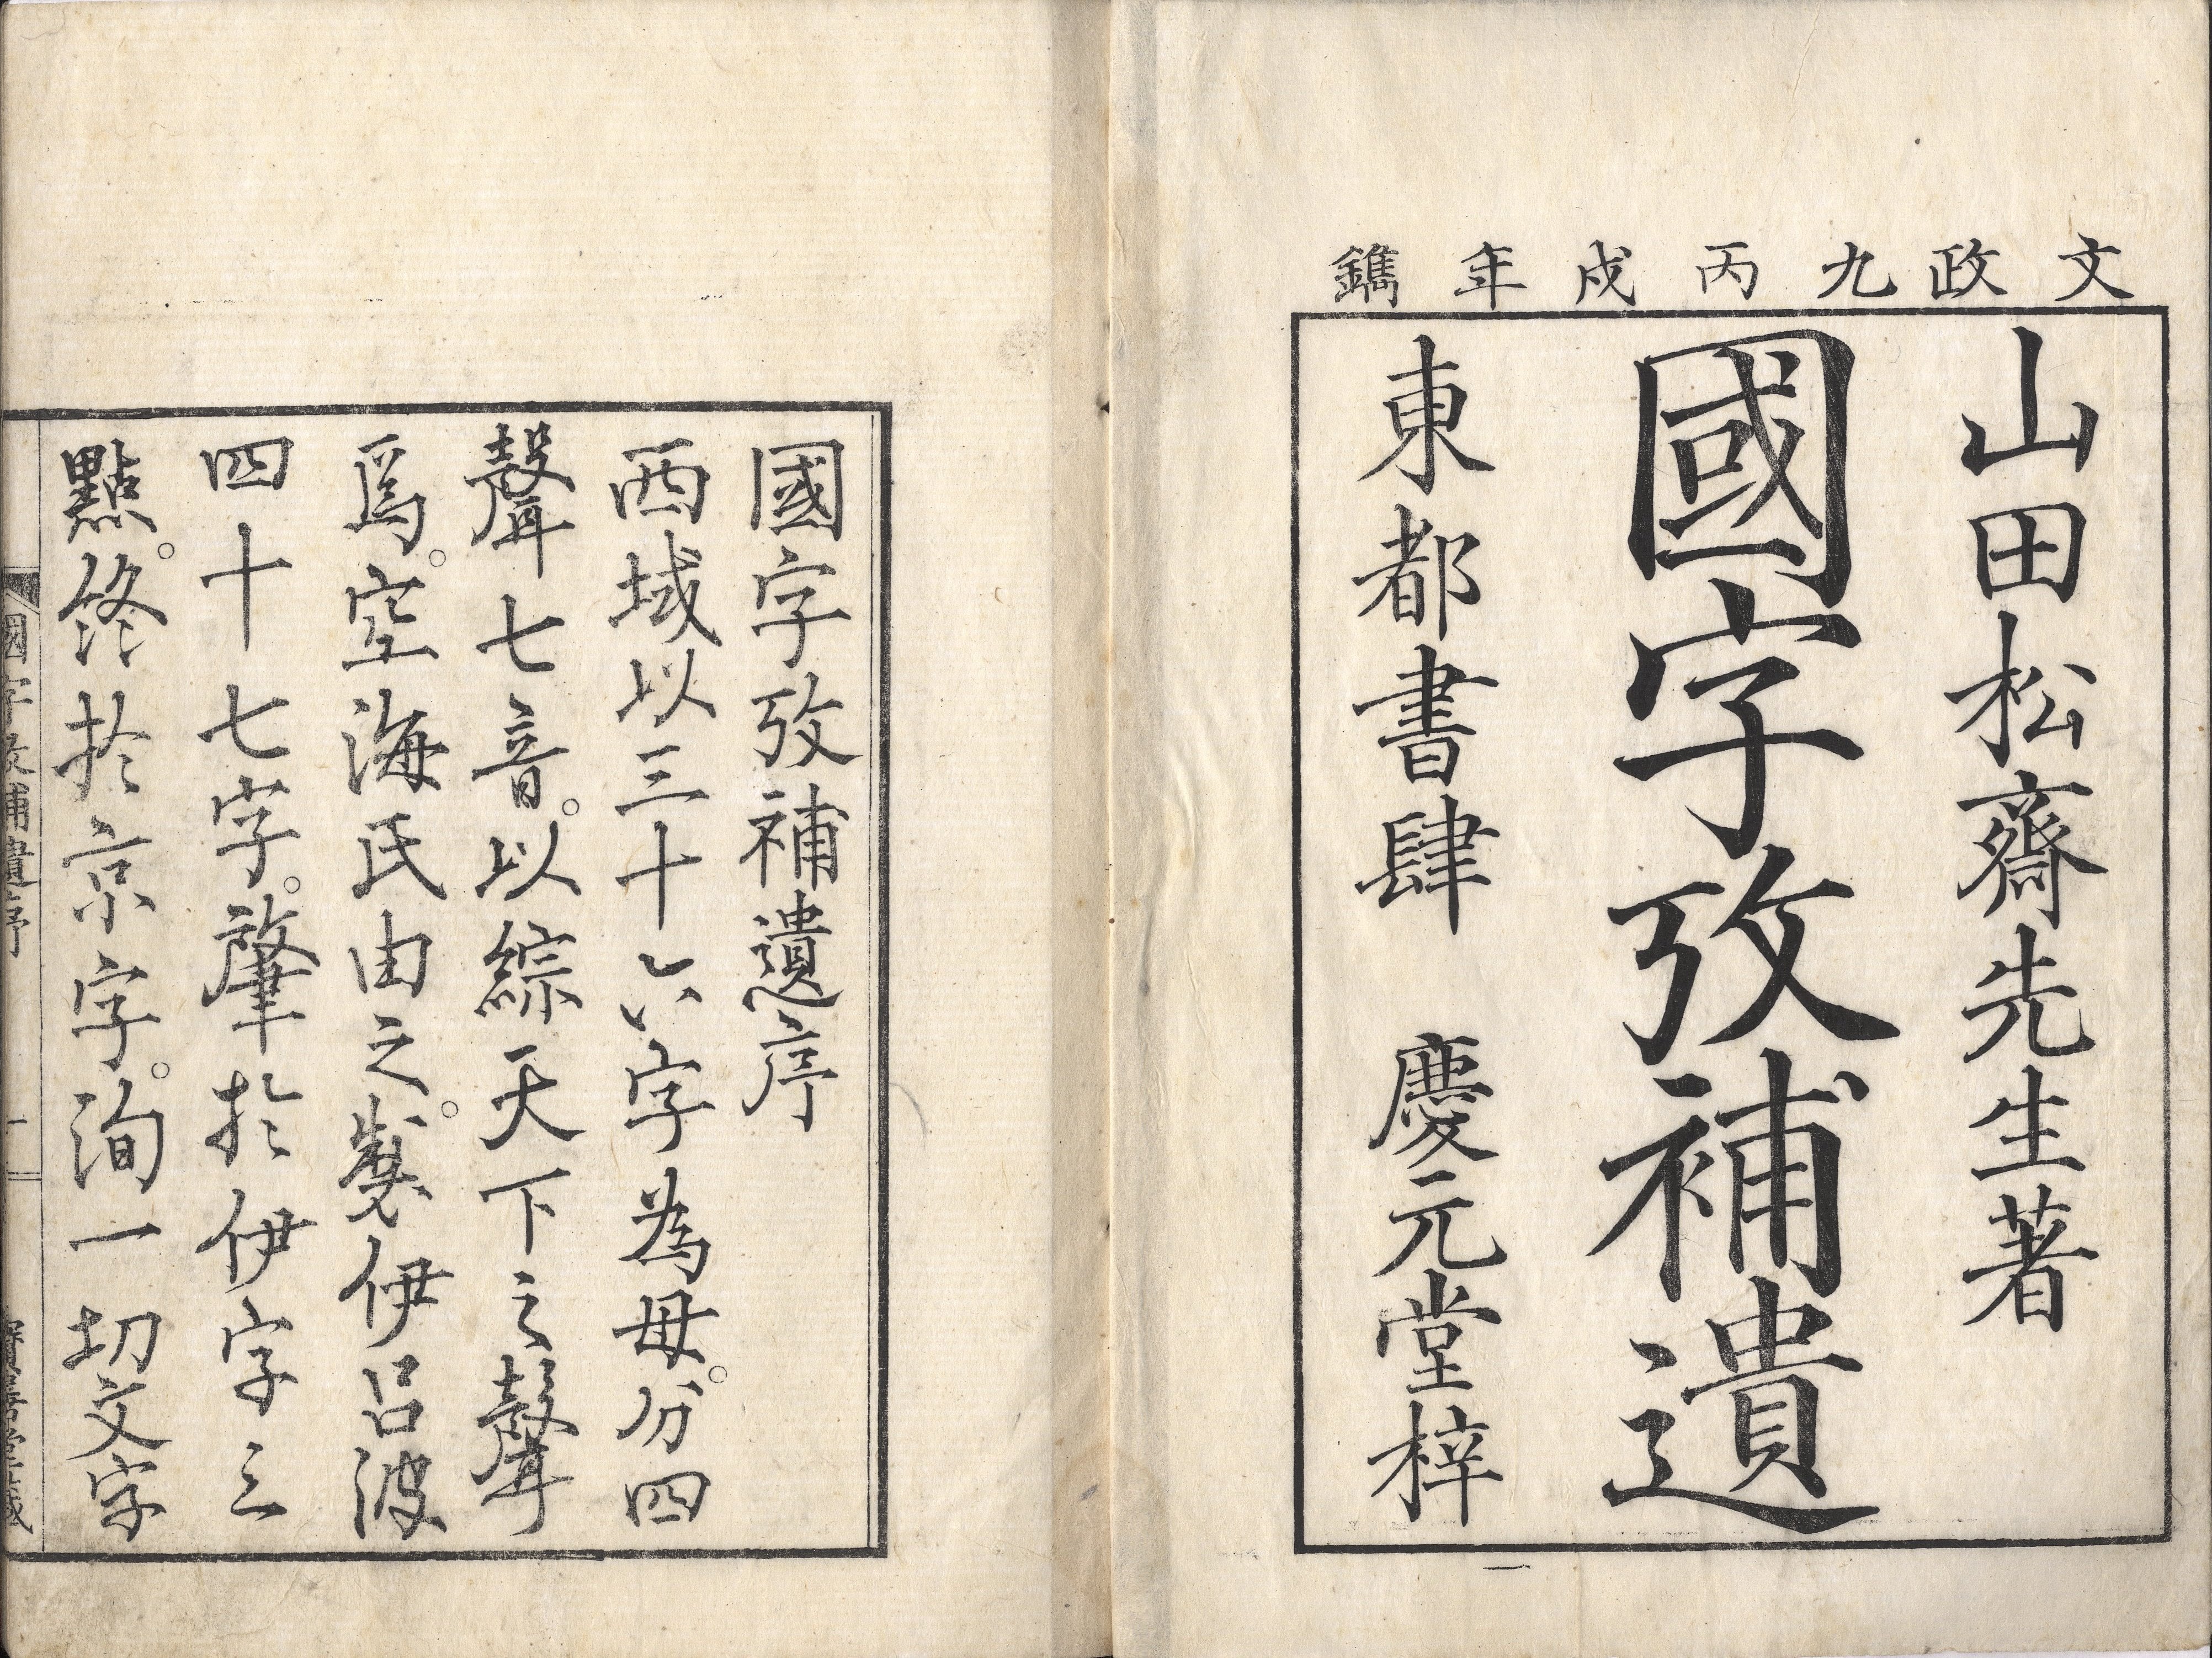 文政九丙戌年鐫
山田松齋先生著
國字攷補遺
東都書肆　慶元堂梓
國字攷補遺序
西域以三十六字為母。分四
聲七音。以綜天下之聲
爲。空海氏由之製。伊呂波
四十七字。肇於伊字之
點。終於京字。洵一切文字
國字攷補遺序　一